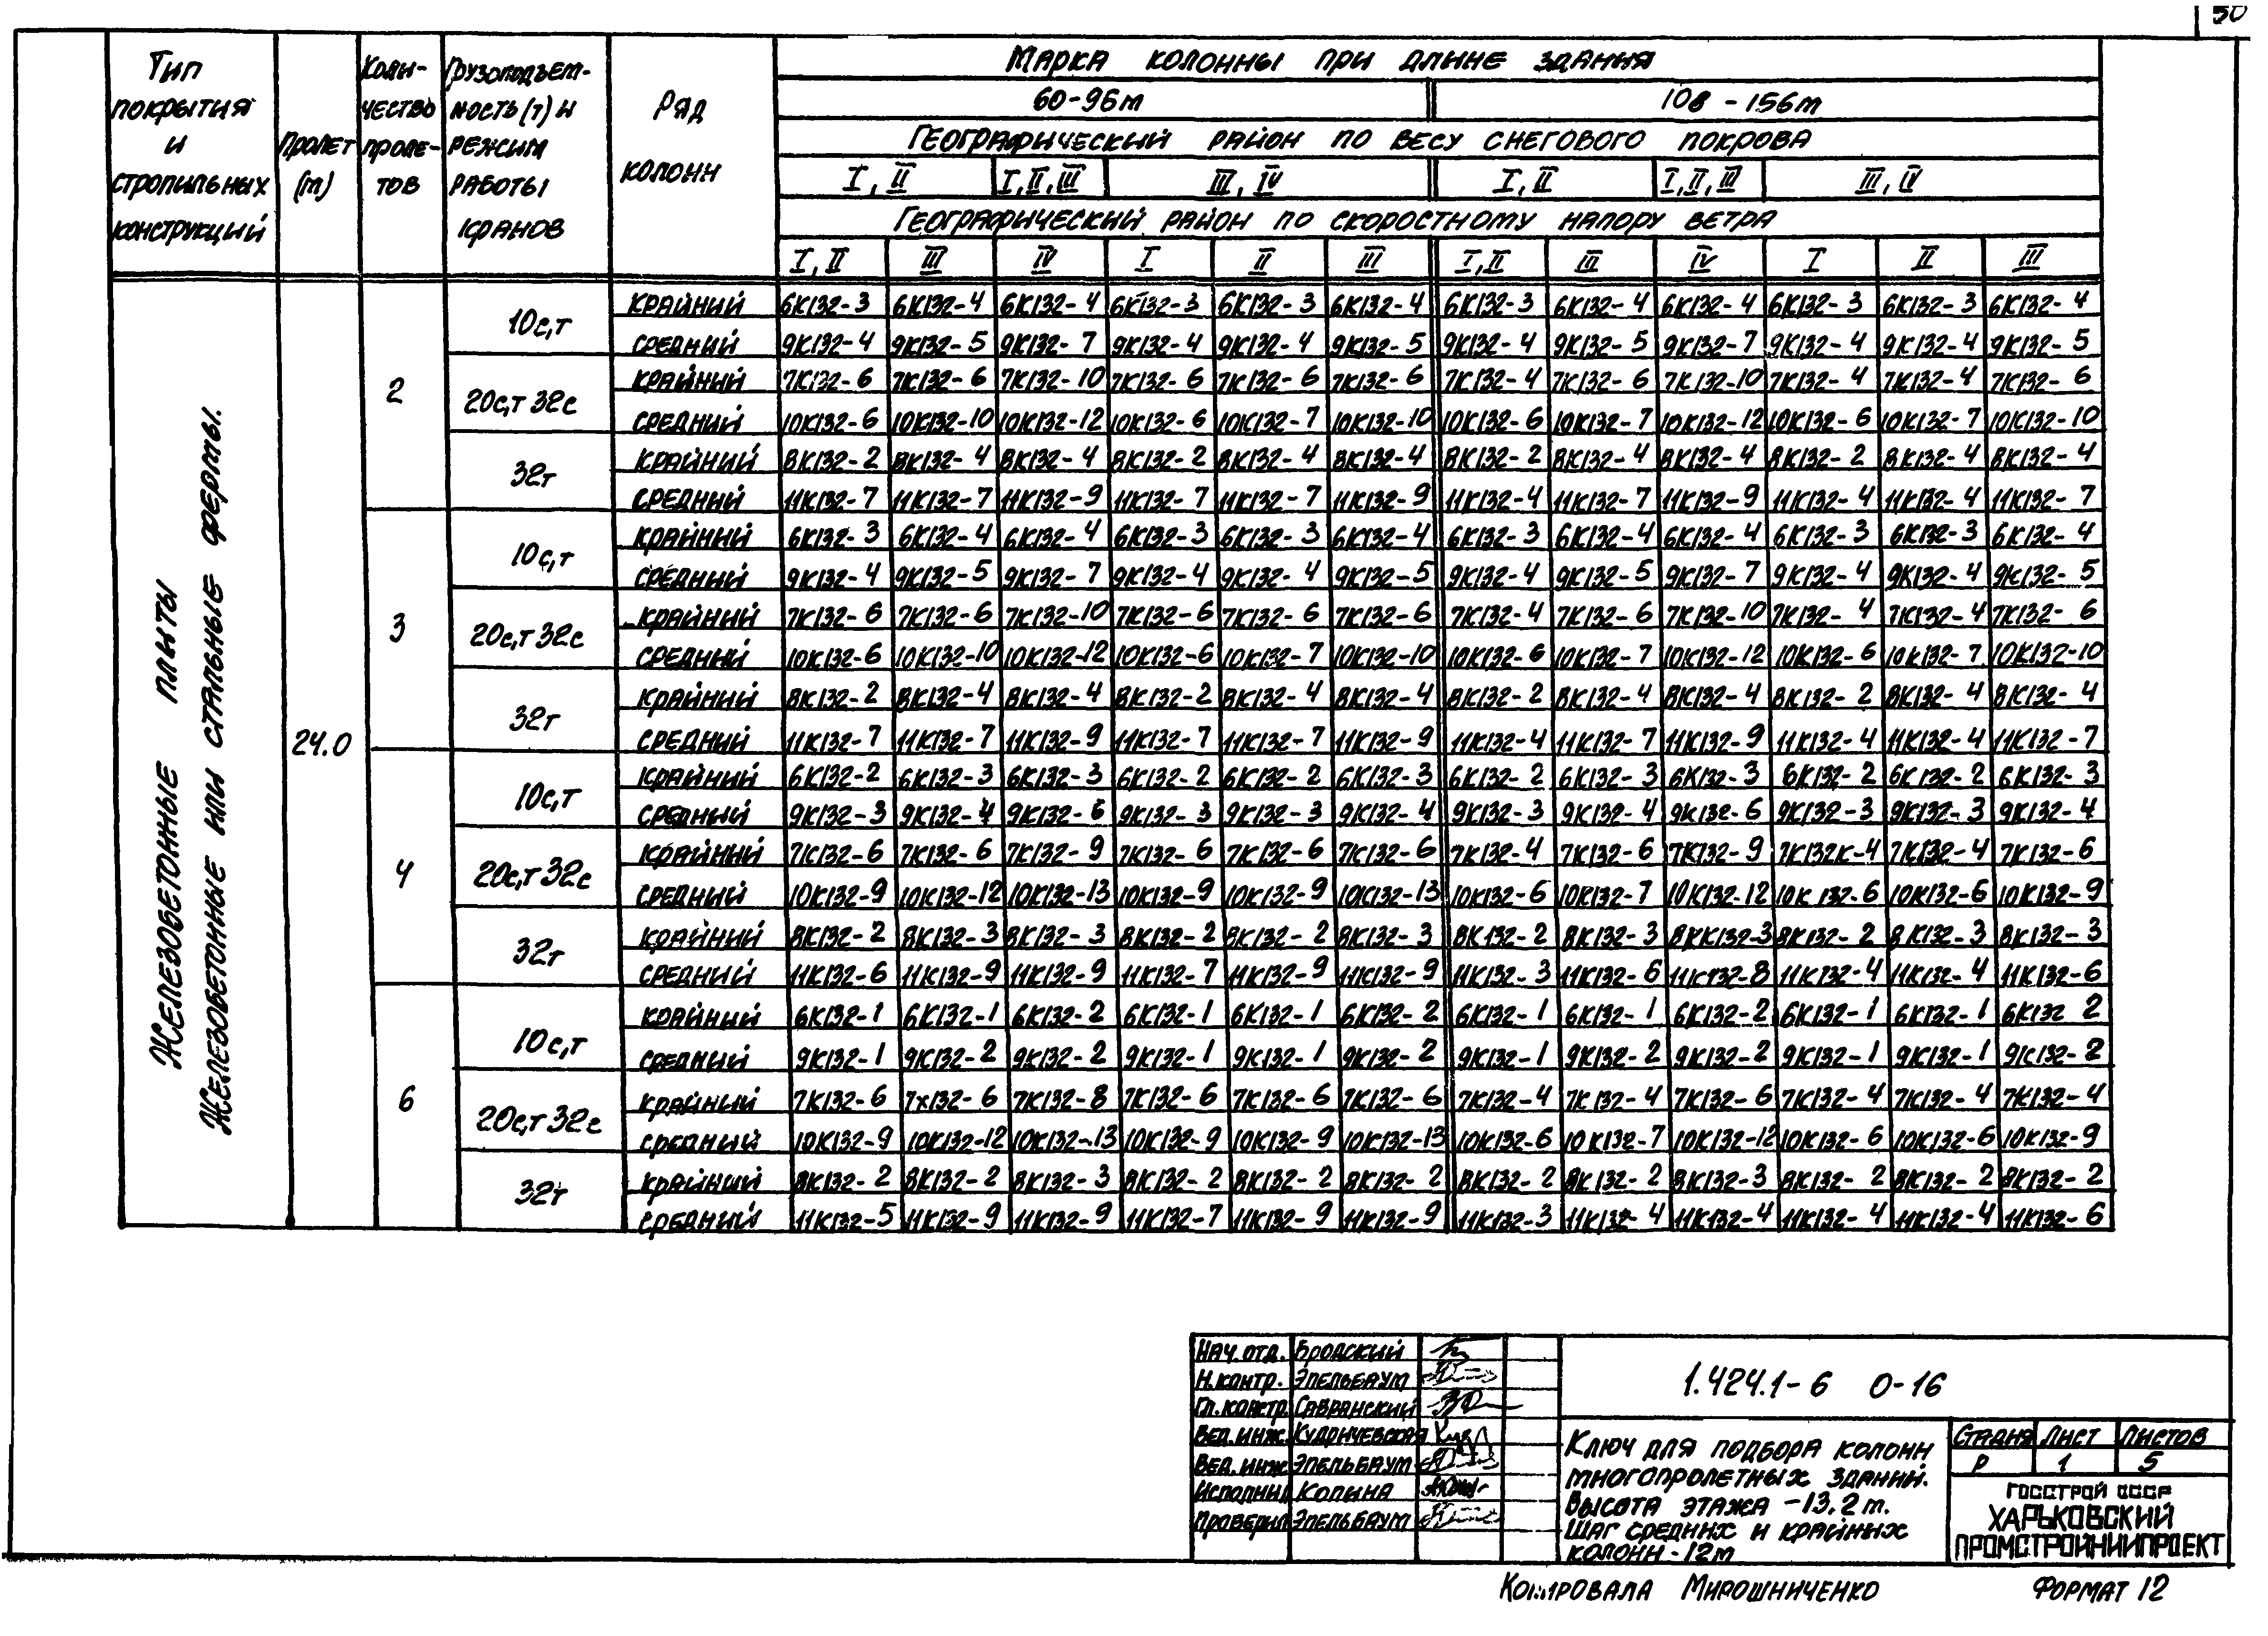 50
Тип покрытия и стропильных конструкций
Пролет (м)
Количество пролетов
Грузоподъемность (т) и режим работы кранов
Ряд колонн
Марка колонны при длине здания
60-96м 108-156м
Географический район по весу снегового покрова
I, II I, II, III III, IV I, II I, II, III III, IV
Географический район по скоростному напору ветра
I, II III IV I II III I, II III IV I II III
Железобетонные плиты
Железобетонные или стальные фермы.
24.0
2
10с,т
крайний 6К132-3 6К132-4 6К132-4 6К132-3 6К132-3 6К132-4 6К132-3 6К132-4 6К132-4 6К132-3 6К132-3 6К132-4
средний 9К132-4 9К132-5 9К132-7 9К132-4 9К132-4 9К132-5 9К132-4 9К132-5 9К132-7 9К132-4 9К132-4 9К132-5
20с,т 32с
крайний 7К132-6 7К132-6 7К132-10 7К132-6 7К132-6 7К132-6 7К132-4 7К132-6 7К132-10 7К132-4 7К132-4 7К132-6
средний 10К132-6 10К132-10 10К132-12 10К132-6 10К132-7 10К132-10 10К132-6 10К132-7 10К132-12 10К132-6 10К132-7 10К132-10
32т
крайний 8К132-2 8К132-4 8К132-4 8К132-2 8К132-4 8К132-4 8К132-2 8К132-4 8К132-4 8К132-2 8К132-4 8К132-4
средний 11К132-7 11К132-7 11К132-9 11К132-7 11К132-7 11К132-9 11К132-4 11К132-7 11К132-9 11К132-4 11К132-4 11К132-7
3
10с,т
крайний 6К132-3 6К132-4 6К132-4 6К132-3 6К132-3 6К132-4 6К132-3 6К132-4 6К132-4 6К132-3 6К132-3 6К132-4
средний 9К132-4 9К132-5 9К132-7 9К132-4 9К132-4 9К132-5 9К132-4 9К132-5 9К132-7 9К132-4 9К132-4 9К132-5
20с,т 32с
крайний 7К132-6 7К132-6 7К132-10 7К132-6 7К132-6 7К132-6 7К132-4 7К132-6 7К132-10 7К132-4 7К132-4 7К132-6
средний 10К132-6 10К132-10 10К132-12 10К132-6 10К132-7 10К132-10 10К132-6 10К132-7 10К132-12 10К132-6 10К132-7 10К132-10
32т
крайний 8К132-2 8К132-4 8К132-4 8К132-2 8К132-4 8К132-4 8К132-2 8К132-4 8К132-4 8К132-2 8К132-4 8К132-4
средний 11К132-7 11К132-7 11К132-9 11К132-7 11К132-7 11К132-9 11К132-4 11К132-7 11К132-9 11К132-4 11К132-4 11К132-7
4
10с,т
крайний 6К132-2 6К132-3 6К132-3 6К132-2 6К132-2 6К132-3 6К132-2 6К132-3 6К132-3 6К132-2 6К132-2 6К132-3
средний 9К132-3 9К132-4 9К132-6 9К132-3 9К132-3 9К132-4 9К132-3 9К132-4 9К132-6 9К132-3 9К132-3 9К132-4
20с,т 32с
крайний 7К132-6 7К132-6 7К132-9 7К132-6 7К132-6 7К132-6 7К132-4 7К132-6 7К132-9 7К132К-4 7К132-4 7К132-6
средний 10К132-9 10К132-12 10К132-13 10К132-9 10К132-9 10К132-13 10К132-6 10К132-7 10К132-12 10К132-6 10К132-6 10К132-9
32т
крайний 8К132-2 8К132-3 8К132-3 8К132-2 8К132-2 8К132-3 8К132-2 8К132-3 8КК132-3 8К132-2 8К132-3 8К132-3
средний 11К132-6 11К132-9 11К132-9 11К132-7 11К132-9 11К132-9 11К132-3 11К132-6 11К132-8 11К132-4 11К132-4 11К132-6
6
10с,т
крайний 6К132-1 6К132-1 6К132-2 6К132-1 6К132-1 6К132-2 6К132-1 6К132-1 6К132-2 6К132-1 6К132-1 6К132 2
средний 9К132-1 9К132-2 9К132-2 9К132-1 9К132-1 9К132-2 9К132-1 9К132-2 9К132-2 9К132-1 9К132-1 9К132-2
20с,т 32с
крайний 7К132-6 7К132-6 7К132-8 7К132-6 7К132-6 7К132-6 7К132-4 7К132-4 7К132-6 7К132-4 7К132-4 7К132-4
средний 10К132-9 10К132-12 10К132-13 10К132-9 10К132-9 10К132-13 10К132-6 10К132-7 10К132-12 10К132-6 10К132-6 10К132-9
32т
крайний 8К132-2 8К132-2 8К132-3 8К132-2 8К132-2 8К132-2 8К132-2 8К132-2 8К132-3 8К132-2 8К132-2 8К132-2
средний 11К132-5 11К132-9 11К132-9 11К132-7 11К132-9 11К132-9 11К132-3 11К132-4 11К132-4 11К132-4 11К132-4 11К132-6
Нач. отд. Бродский
Н. контр. Эпельбаум
Гл. констр. Савранский
Вед. инж. Кудричевская
Вед. инж. Эпельбаум
Исполнил Копина
Проверил Эпельбаум
1.424.1-6 0-16
Ключ для подбора колонн
многопролетных зданий.
Высота этажа - 13,2 м.
Шаг средних и крайних
колонн - 12м
Стадия Лист Листов
Р 1 5
ГОССТРОЙ СССР
ХАРЬКОВСКИЙ
ПРОМСТРОЙНИИПРОЕКТ
Копировала Мирошниченко Формат 12